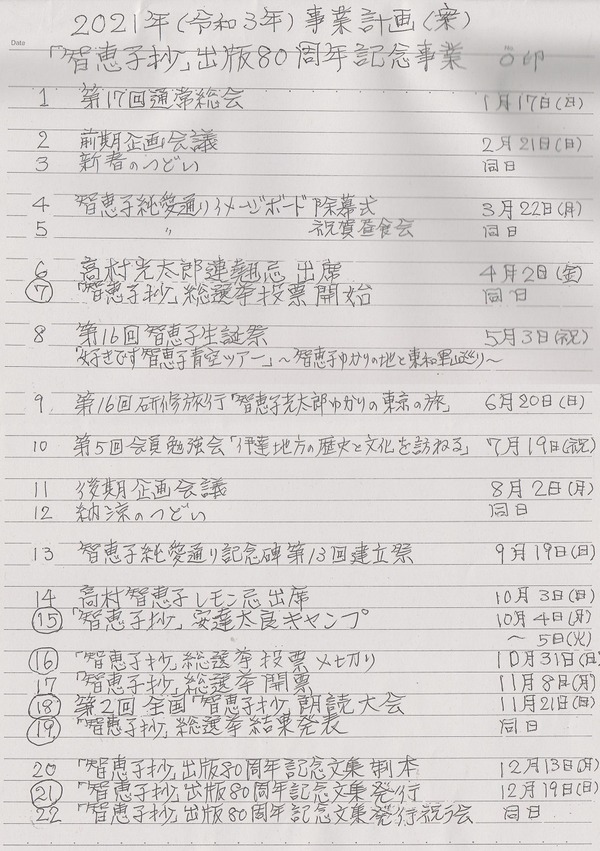 2021年(令和3年)事業計画(案)
Date
「智恵子抄」出版80周年記念事業 ○印
No
1 第17回通常総会 1月17日(日)
2 前期企画会議 2月21日(日)
3 新春のつどい 同日
4 智恵子純愛通りイメージボード除幕式 3月22日(月)
5 〃 祝賀昼食会 同日
6 高村光太郎連翹忌 出席 4月2日(金)
⑦ 「智恵子抄」総選挙投票開始 同日
8 第16回智恵子生誕祭 5月3日(祝)
「好きです智恵子青空ツアー」～智恵子ゆかりの地と東和野山巡り～
9 第16回研修旅行「智恵子光太郎ゆかりの東京の旅」 6月20日(日)
10 第5回会員勉強会「伊達地方の歴史と文化を訪ねる」 7月19日(祝)
11 後期企画会議 8月2日(月)
12 納涼のつどい 同日
13 智恵子純愛通り記念碑第13回建立祭 9月19日(日)
14 高村智恵子レモン忌 出席 10月3日(日)
⑮ 「智恵子抄」安達太良キャンプ 10月4日(月)
～5日(火)
⑯ 「智恵子抄」総選挙投票〆切り 10月31日(日)
17 「智恵子抄」総選挙開票 11月8日(月)
⑱ 第2回全国「智恵子抄」朗読大会 11月21日(日)
⑲ 「智恵子抄」総選挙結果発表 同日
20 「智恵子抄」出版80周年記念文集製本 12月13日(月)
㉑ 「智恵子抄」出版80周年記念文集発行 12月19日(日)
22 「智恵子抄」出版80周年記念文集発行祝う会 同日